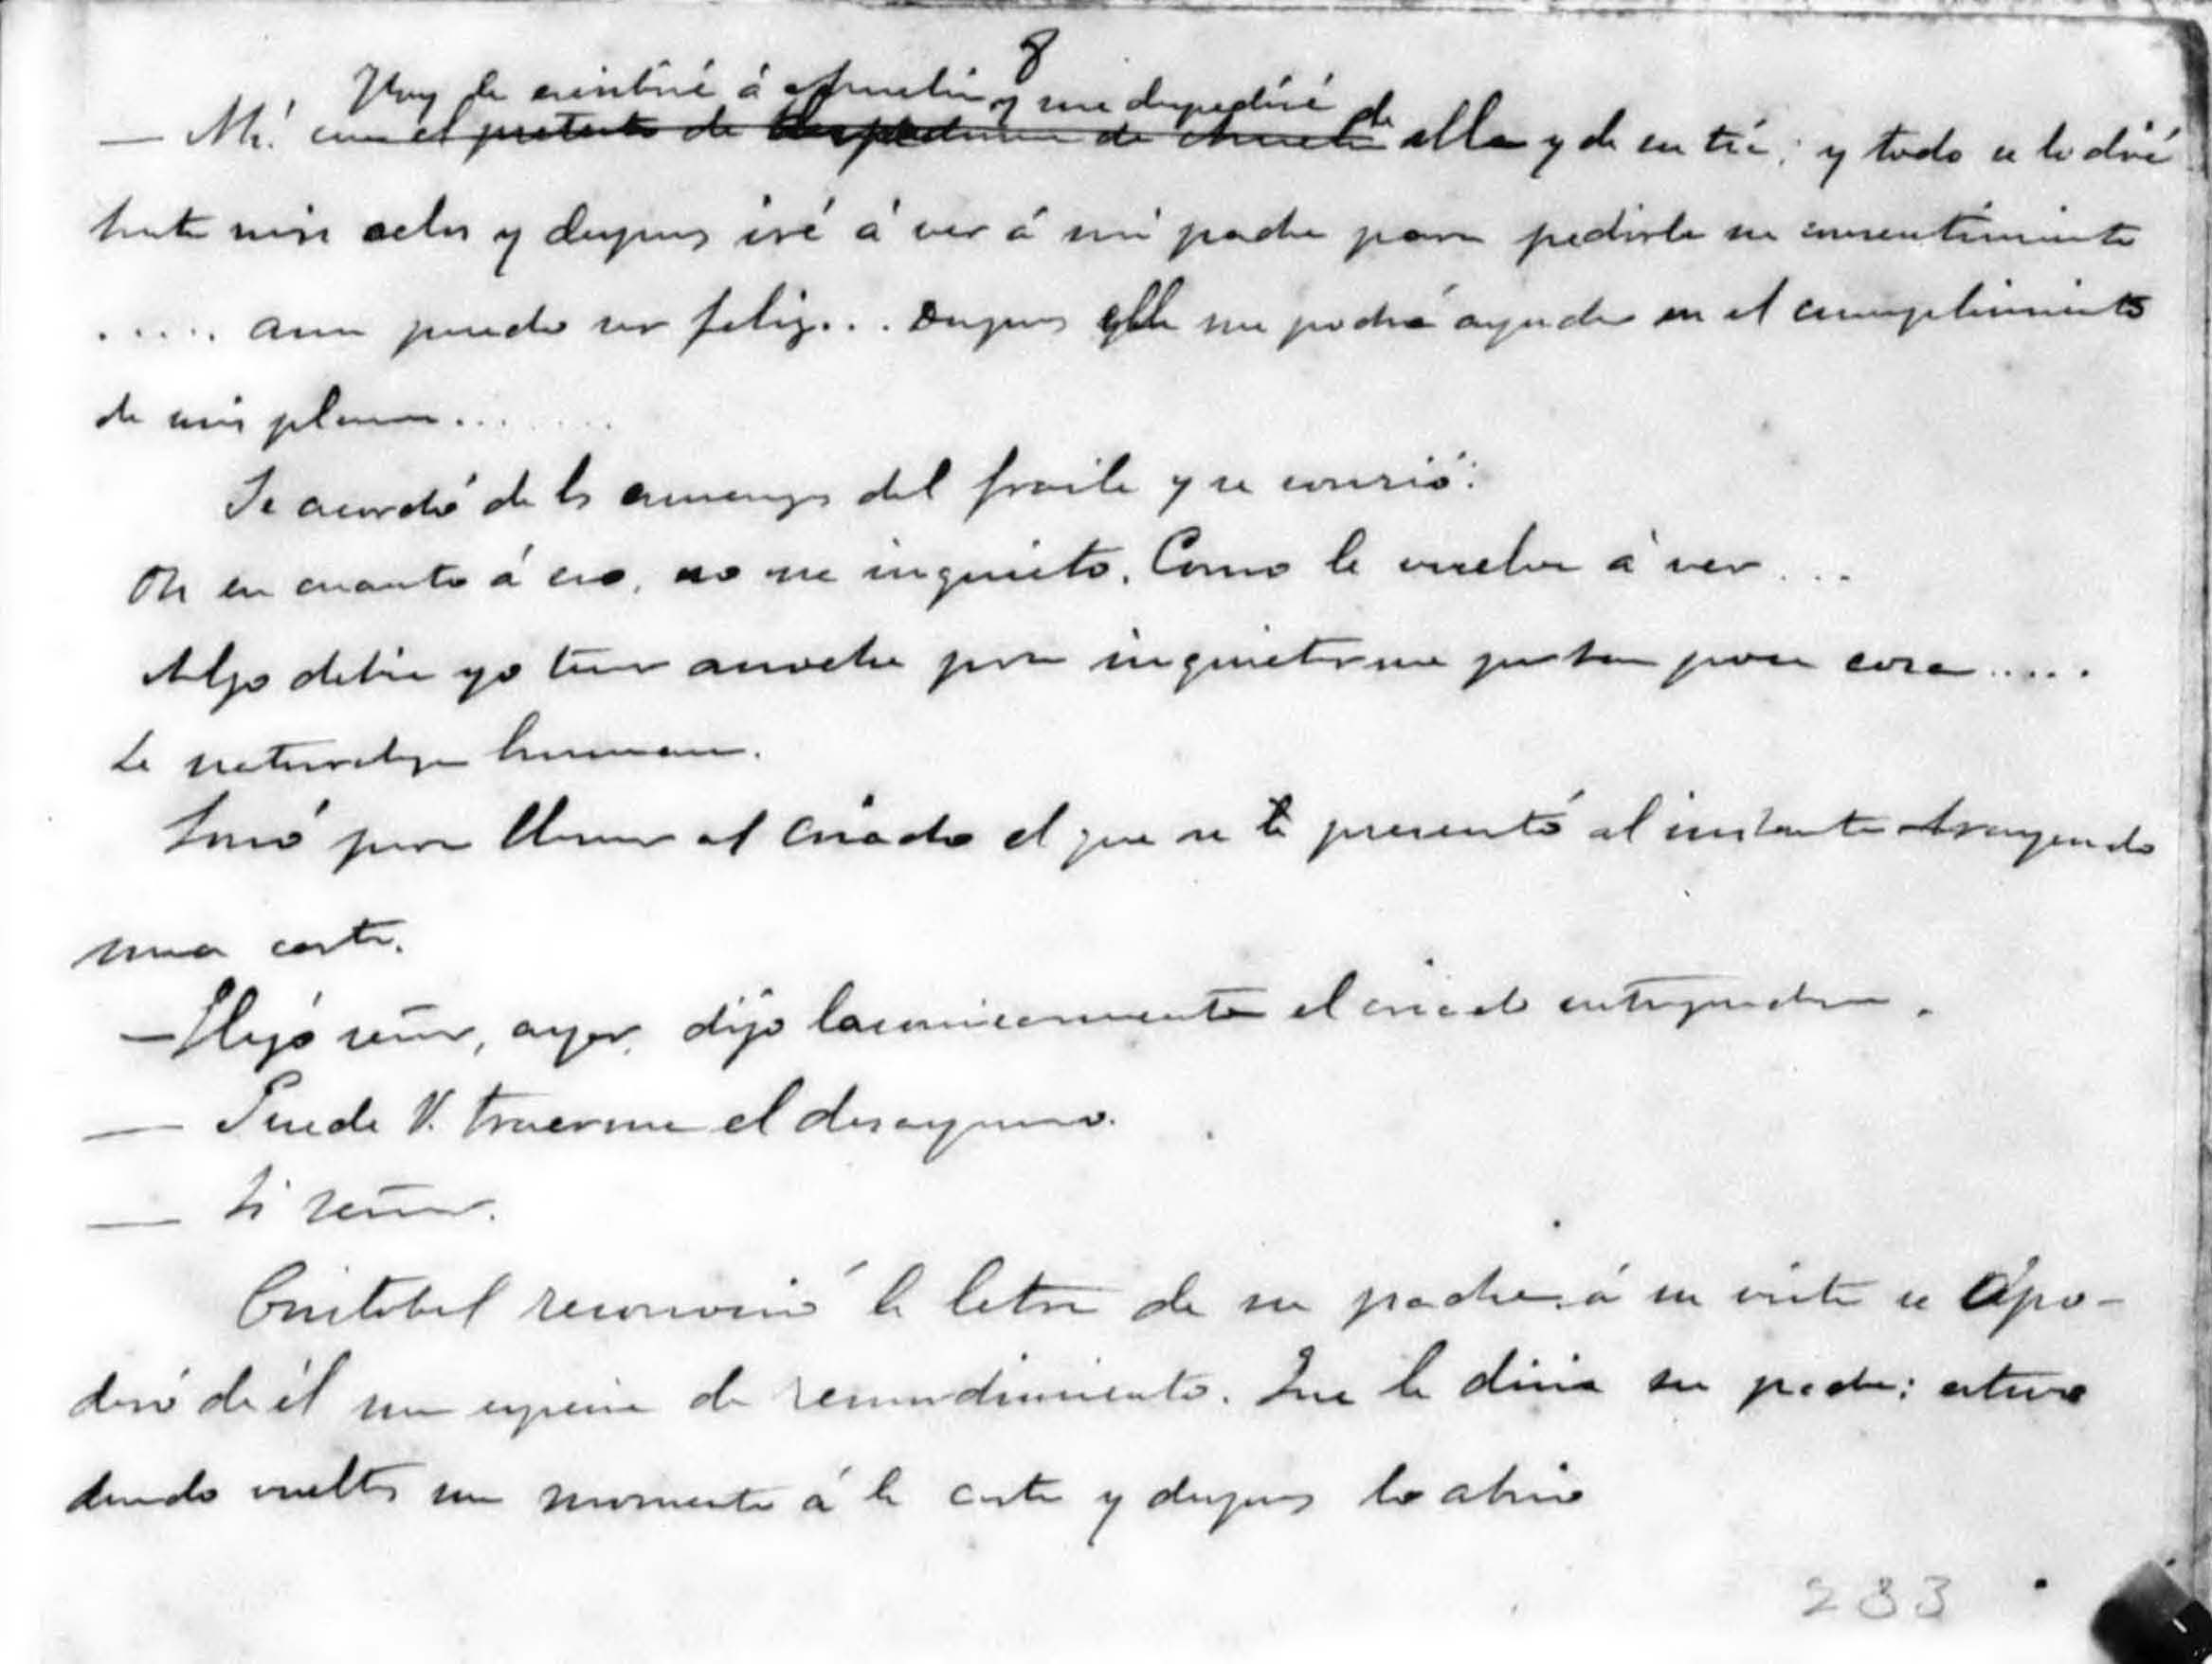 8
Hoy le escribiré á Amelia y me despediré de
— Ah! con el pretesto de despedirme de Amelia ella y de su tia; y todo se lo diré
hasta mis celos y despues iré á ver á mi padre para pedirle su consentimiento
..... aun puedo ser feliz... Despues ella me podrá ayudar en el cumplimiento
de mis planes.......
Se acordó de las amenazas del fraile y se sonrió:
Oh en cuanto á eso, no me inquieto. Como le vuelva á ver....
Algo debia yo tener anoche para inquietarme por tan poca cosa.....
La naturaleza humana.
Tocó para llamar al criado el que se le presentó al instante trayendo
una carta.
— Llegó señor, ayer, dijo laconicamente el criado entregandola.
— Puede V. traerme el desayuno.
— Si señor.
Cristobal reconoció la letra de su padre: á su vista se apo-
deró de él una especie de remordimiento. Que le diria su padre: estuvo
dando vueltas un momento á la carta y despues la abrió
233